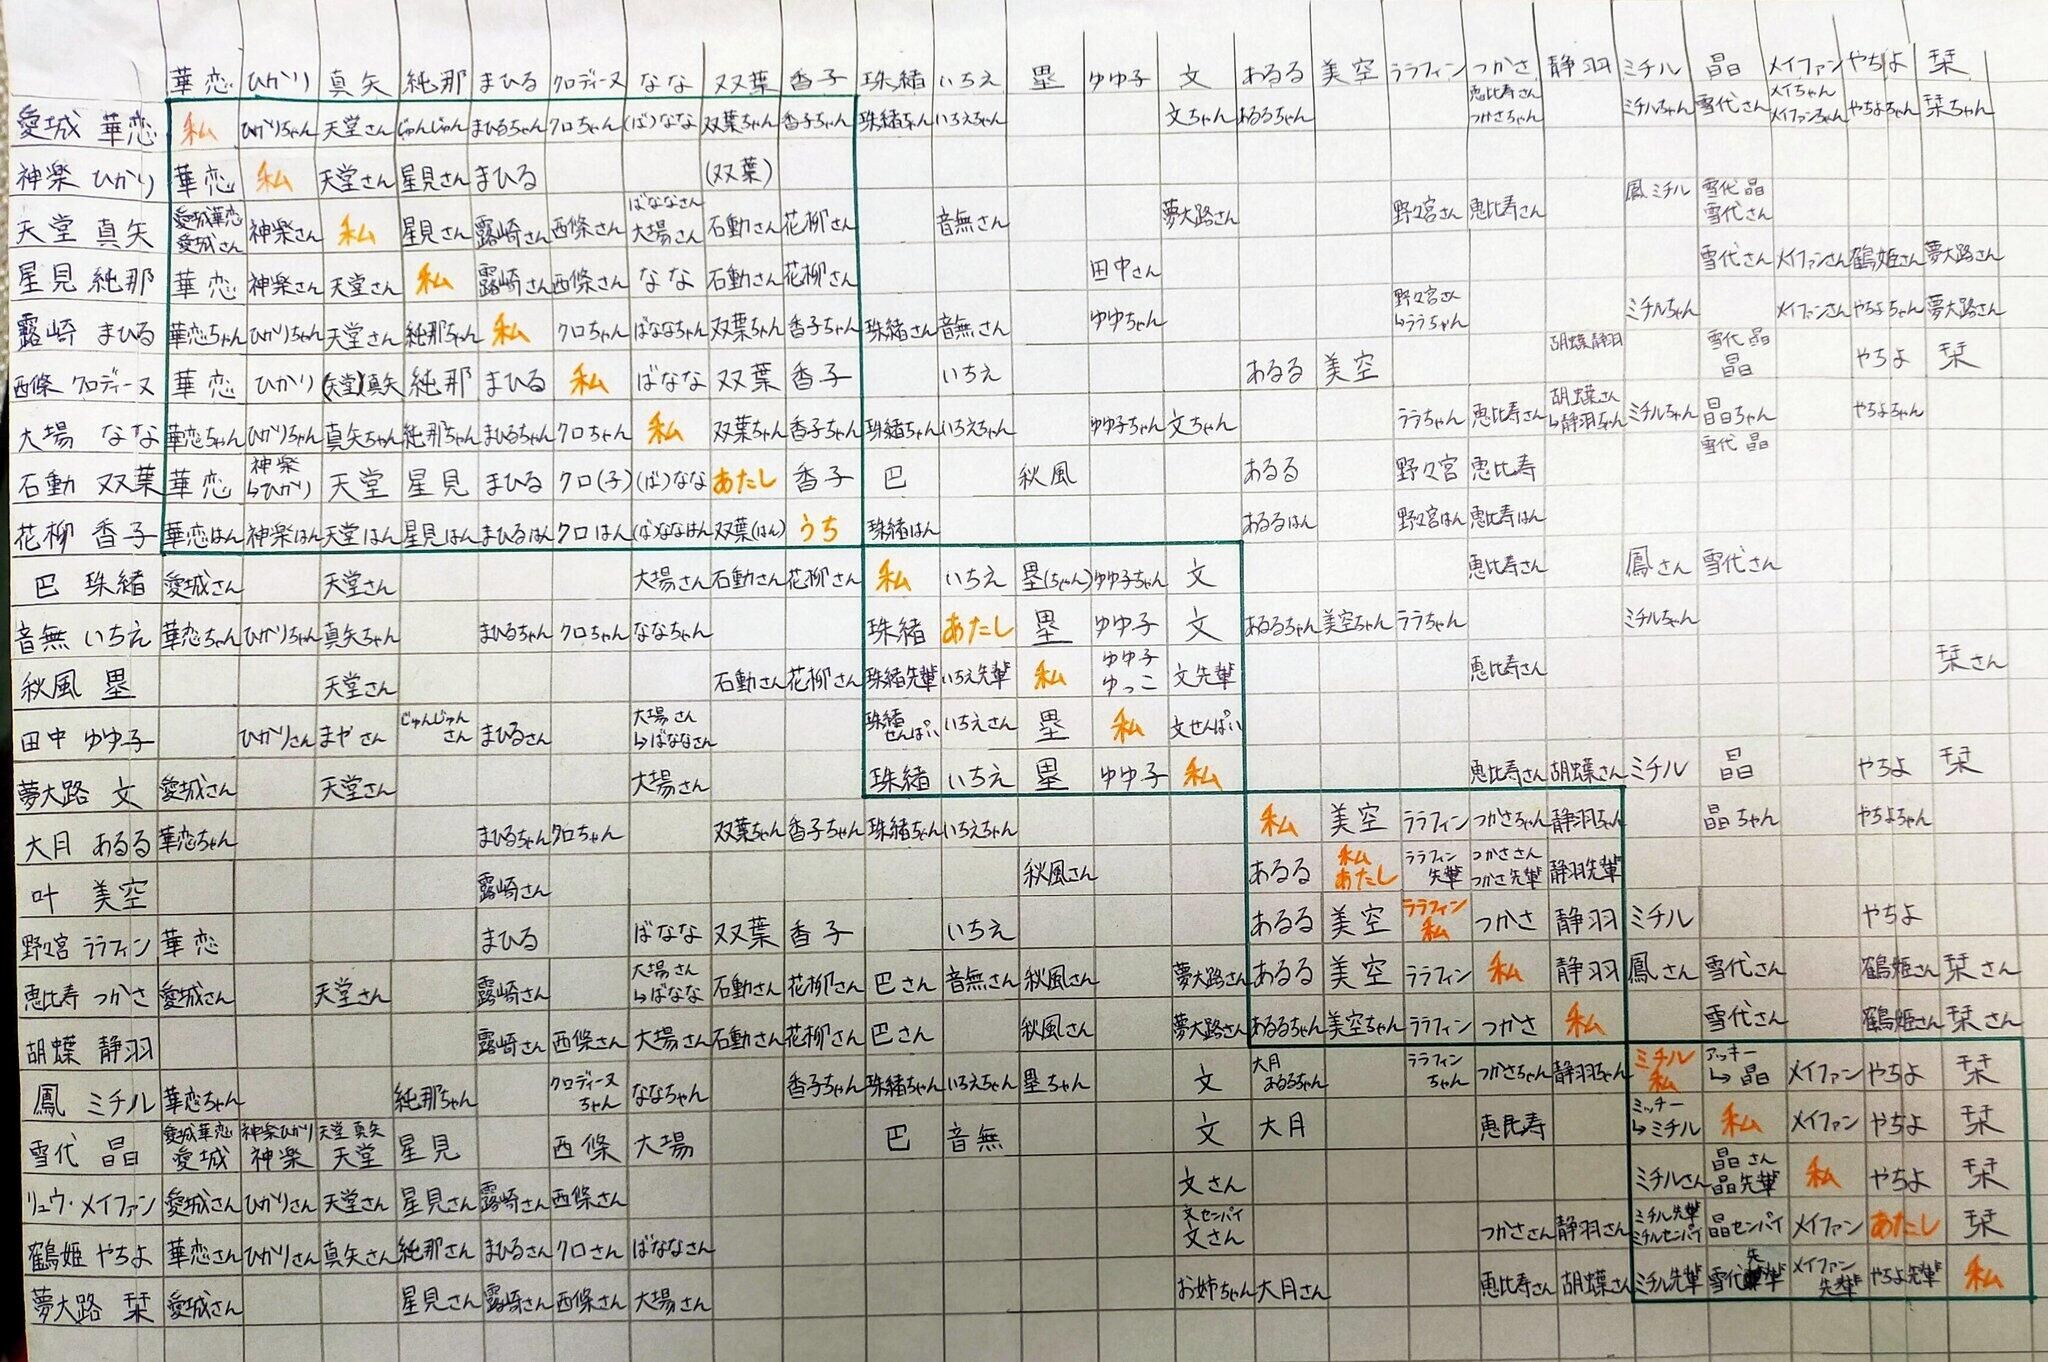 華恋 ひかり 真矢 純那 まひる クロディーヌ なな 双葉 香子 珠緒 いちえ 塁 ゆゆ子 文 あるる 美空 ララフィン つかさ 静羽 ミチル 晶 メイファン やちよ 栞
愛城 華恋 私 ひかりちゃん 天堂さん じゅんじゅん まひるちゃん クロちゃん (ば)なな 双葉ちゃん 香子ちゃん 珠緒ちゃん いちえちゃん 文ちゃん あるるちゃん 恵比寿さん つかさちゃん ミチルちゃん 雪代さん メイちゃん メイファンちゃん やちよちゃん 栞ちゃん
神楽 ひかり 華恋 私 天堂さん 星見さん まひる (双葉)
天堂 真矢 愛城華恋 愛城さん 神楽さん 私 星見さん 露崎さん 西條さん ばななさん 大場さん 石動さん 花柳さん 音無さん 夢大路さん 野々宮さん 恵比寿さん 鳳ミチル 雪代晶 雪代さん
星見 純那 華恋 神楽さん 天堂さん 私 露崎さん 西條さん なな 石動さん 花柳さん 田中さん 雪代さん メイファンさん 鶴姫さん 夢大路さん
露崎 まひる 華恋ちゃん ひかりちゃん 天堂さん 純那ちゃん 私 クロちゃん ばななちゃん 双葉ちゃん 香子ちゃん 珠緒さん 音無さん ゆゆちゃん 野々宮さん ↳ララちゃん ミチルちゃん メイファンさん やちよちゃん 夢大路さん
西條 クロディーヌ 華恋 ひかり (天堂)真矢 純那 まひる 私 ばなな 双葉 香子 いちえ あるる 美空 胡蝶静羽 雪代晶 晶 やちよ 栞
大場 なな 華恋ちゃん ひかりちゃん 真矢ちゃん 純那ちゃん まひるちゃん クロちゃん 私 双葉ちゃん 香子ちゃん 珠緒ちゃん いちえちゃん ゆゆ子ちゃん 文ちゃん ララちゃん 恵比寿さん 胡蝶さん ↳静羽ちゃん ミチルちゃん 晶ちゃん 雪代晶 やちよちゃん
石動 双葉 華恋 神楽 ↳ひかり 天堂 星見 まひる クロ(子) (ば)なな あたし 香子 巴 秋風 あるる 野々宮 恵比寿
花柳 香子 華恋はん 神楽はん 天堂はん 星見はん まひるはん クロはん (ば)ななはん 双葉(はん) うち 珠緒はん あるるはん 野々宮はん 恵比寿はん
巴 珠緒 愛城さん 天堂さん 大場さん 石動さん 花柳さん 私 いちえ 塁(ちゃん) ゆゆ子ちゃん 文 恵比寿さん 鳳さん 雪代さん
音無 いちえ 華恋ちゃん ひかりちゃん 真矢ちゃん まひるちゃん クロちゃん ななちゃん 珠緒 あたし 塁 ゆゆ子 文 あるるちゃん 美空ちゃん ララちゃん ミチルちゃん
秋風 塁 天堂さん 石動さん 花柳さん 珠緒先輩 いちえ先輩 私 ゆゆ子 ゆっこ 文先輩 恵比寿さん 栞さん
田中 ゆゆ子 ひかりさん まやさん じゅんじゅんさん まひるさん 大場さん ↳ばななさん 珠緒せんぱい いちえさん 塁 私 文せんぱい
夢大路 文 愛城さん 天堂さん 大場さん 珠緒 いちえ 塁 ゆゆ子 私 恵比寿さん 胡蝶さん ミチル 晶 やちよ 栞
大月 あるる 華恋ちゃん まひるちゃん クロちゃん 双葉ちゃん 香子ちゃん 珠緒ちゃん いちえちゃん 私 美空 ララフィン つかさちゃん 静羽ちゃん 晶ちゃん やちよちゃん
叶 美空 露崎さん 秋風さん あるる 私 あたし ララフィン先輩 つかささん つかさ先輩 静羽先輩
野々宮 ララフィン 華恋 まひる ばなな 双葉 香子 いちえ あるる 美空 ララフィン 私 つかさ 静羽 ミチル やちよ
恵比寿 つかさ 愛城さん 天堂さん 露崎さん 大場さん ↳ばなな 石動さん 花柳さん 巴さん 音無さん 秋風さん 夢大路さん あるる 美空 ララフィン 私 静羽 鳳さん 雪代さん 鶴姫さん 栞さん
胡蝶 静羽 露崎さん 西條さん 大場さん 石動さん 花柳さん 巴さん 秋風さん 夢大路さん あるるちゃん 美空ちゃん ララフィン つかさ 私 雪代さん 鶴姫さん 栞さん
鳳 ミチル 華恋ちゃん 純那ちゃん クロディーヌちゃん ななちゃん 香子ちゃん 珠緒ちゃん いちえちゃん 塁ちゃん 文 大月あるるちゃん ララフィンちゃん つかさちゃん 静羽ちゃん ミチル 私 アッキー ↳晶 メイファン やちよ 栞
雪代 晶 愛城華恋 愛城 神楽ひかり 神楽 天堂真矢 天堂 星見 西條 大場 巴 音無 文 大月 恵比寿 ミッチー ↳ミチル 私 メイファン やちよ 栞
リュウ・メイファン 愛城さん ひかりさん 天堂さん 星見さん 露崎さん 西條さん 文さん ミチルさん 晶さん 晶先輩 私 やちよ 栞
鶴姫 やちよ 華恋さん ひかりさん 真矢さん 純那さん まひるさん クロさん ばななさん 文センパイ 文さん つかささん 静羽さん ミチル先輩 ミチルセンパイ 晶センパイ メイファン あたし 栞
夢大路 栞 愛城さん 星見さん 露崎さん 西條さん 大場さん お姉ちゃん 大月さん 恵比寿さん 胡蝶さん ミチル先輩 雪代先輩 メイファン先輩 やちよ先輩 私